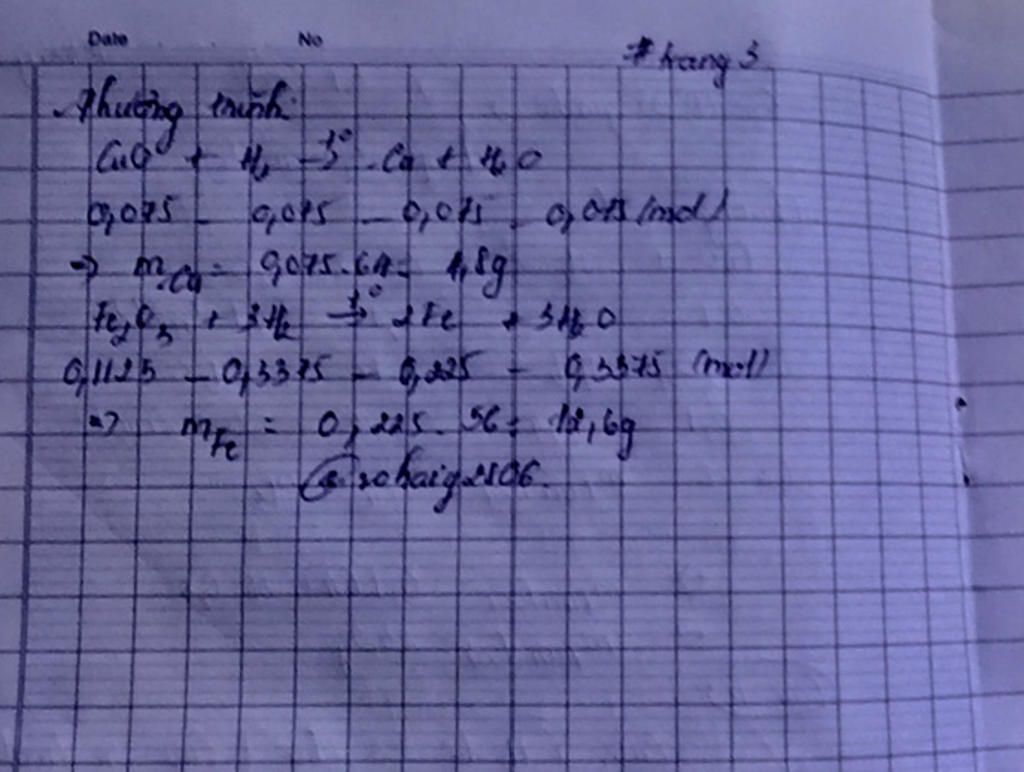 Date No # trang 3
Phương trình:
CuO + H₂ →t° Cu + H₂O
0,075 - 0,075 - 0,075 - 0,075 (mol)
=> m Cu = 0,075.64 = 4,8g
Fe₂O₃ + 3H₂ →t° 2Fe + 3H₂O
0,1125 - 0,3375 - 0,225 - 0,3375 (mol)
=> m Fe = 0,225.56 = 12,6g